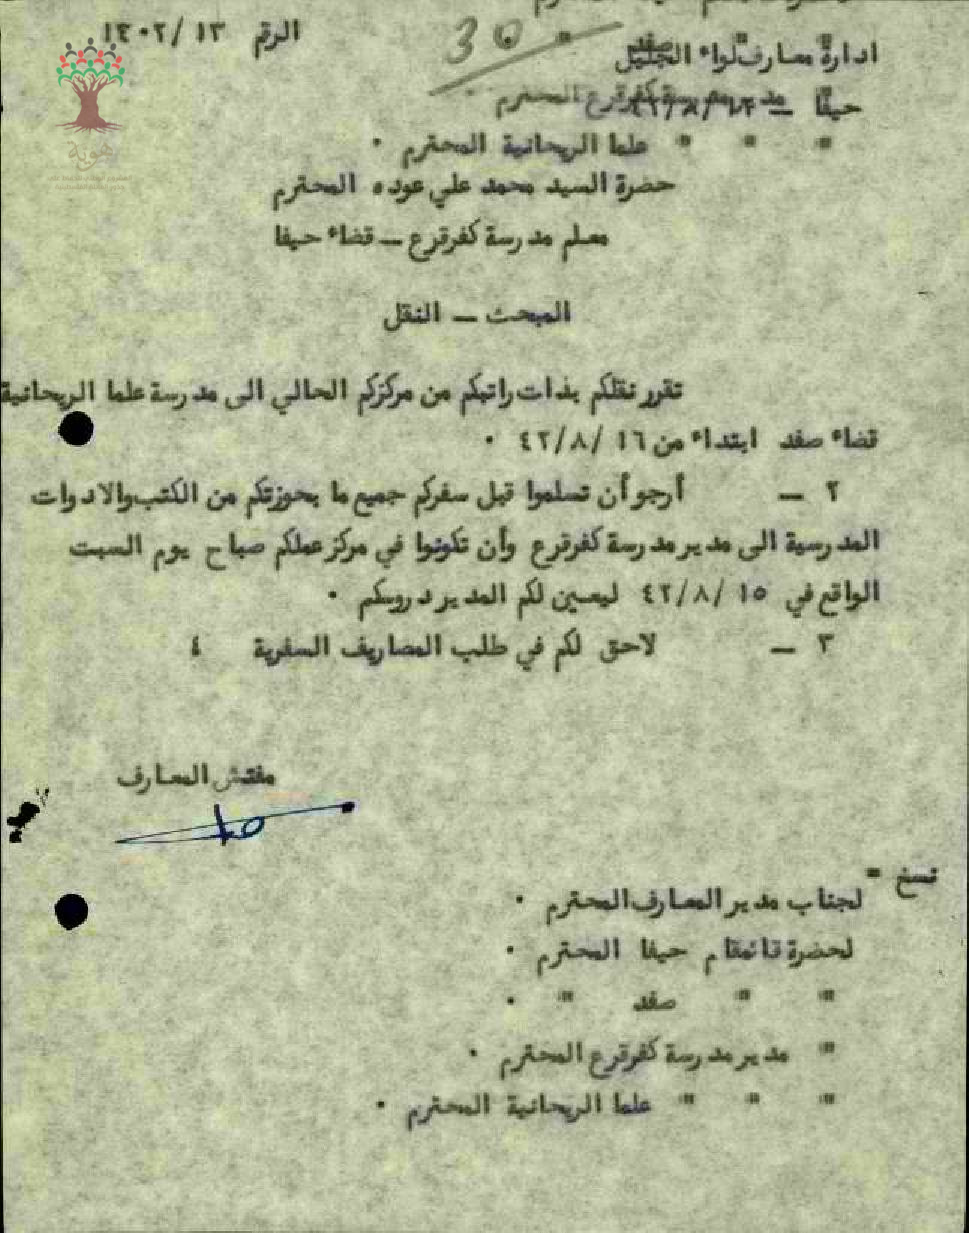 الرقم ١٣/ ١٤٠٢
30
ادارة معارف لواء الجليل
صفد
حيفا —
مدير مدرسة كفرقرع المحترم ٠
" " " علما الريحانية المحترم ٠
هوية
حضرة السيد محمد علي عوده المحترم
معلم مدرسة كفرقرع — قضاء حيفا
المبحث — النقل
تقرر نقلكم بذات راتبكم من مركزكم الحالي الى مدرسة علما الريحانية
قضاء صفد ابتداء من ١٦ /٤٢/٨ ٠
٢ — أرجو أن تسلموا قبل سفركم جميع ما بحوزتكم من الكتب والادوات
المدرسية الى مدير مدرسة كفرقرع وأن تكونوا في مركز عملكم صباح يوم السبت
الواقع في ١٥ /٤٢/٨ ليعين لكم المدير دروسكم ٠
٣ — لاحق لكم في طلب المصاريف السفرية ٤
مفتش المعارف
نسخ =
لجناب مدير المعارف المحترم ٠
لحضرة قائمقام حيفا المحترم ٠
" " صفد " ٠
" مدير مدرسة كفرقرع المحترم ٠
" " " علما الريحانية المحترم ٠